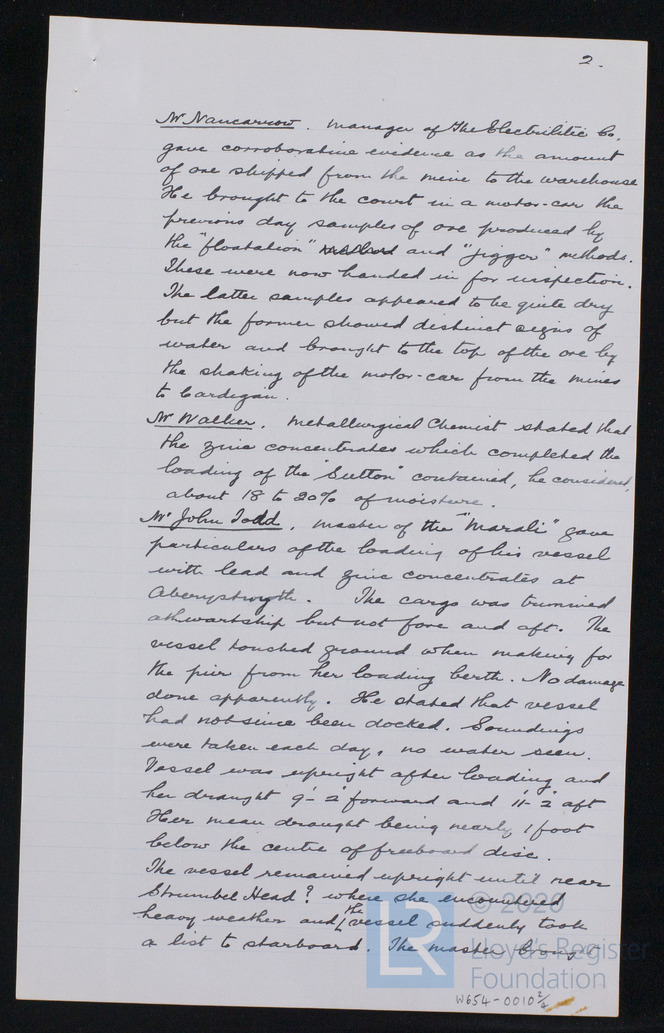 2.
Mr Nancarrow. manager of The Electrilitic Co.
gave corroborative evidence as the amount
of ore shipped from the mine to the warehouse
He brought to the court in a motor-car the
previous day samples of ore produced by
the "floatation" and "jigger" methods.
These were now handed in for inspection.
The latter samples appeared to be quite dry
but the former showed distinct signs of
water and brought to the top of the ore by
the shaking of the motor-car from the mines
to Cardigan.
Mr Walker, Metallurgical Chemist stated that
the zinc concentrates which completed the
loading of the "Sutton" contained, he considered,
about 18 to 20% of moisture.
Mr John Todd, master of the "Marali" gave
particulars of the loading of his vessel
with lead and zinc concentrates at
Aberystwyth. The cargo was trimmed
athwartship but not fore and aft. The
vessel touched ground when making for
the pier from her loading berth. No damage
done apparently. He stated that vessel
had not since been docked. Soundings
were taken each day, no water seen.
Vessel was upright after loading and
her draught 9'-2" forward and 11'-2" aft
Her mean draught being nearly 1 foot
below the centre of freeboard disc.
The vessel remained upright until near
Strumbel Head? where she encountered
heavy weather and the vessel suddenly took
a list to starboard. The master brought
© 2020
LR
Lloyd's Register
Foundation
W654-0010 2/4